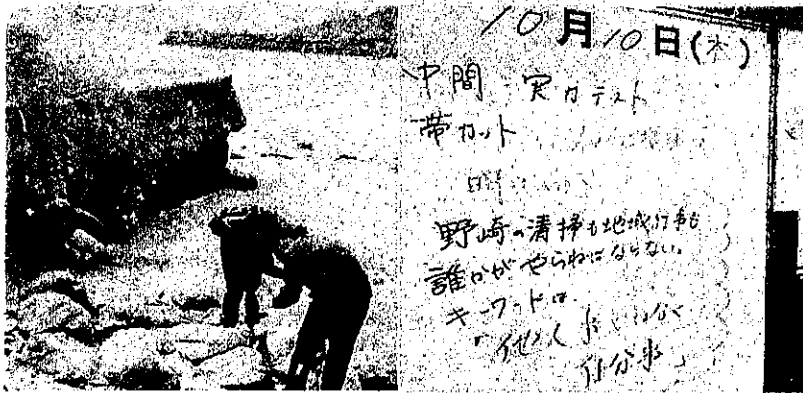 10月10日(木)
中間 実力テスト
帯カット
野崎の清掃も地域行事も
誰かがやらねばならない。
キーワードは
「他人事ではなく
自分事」